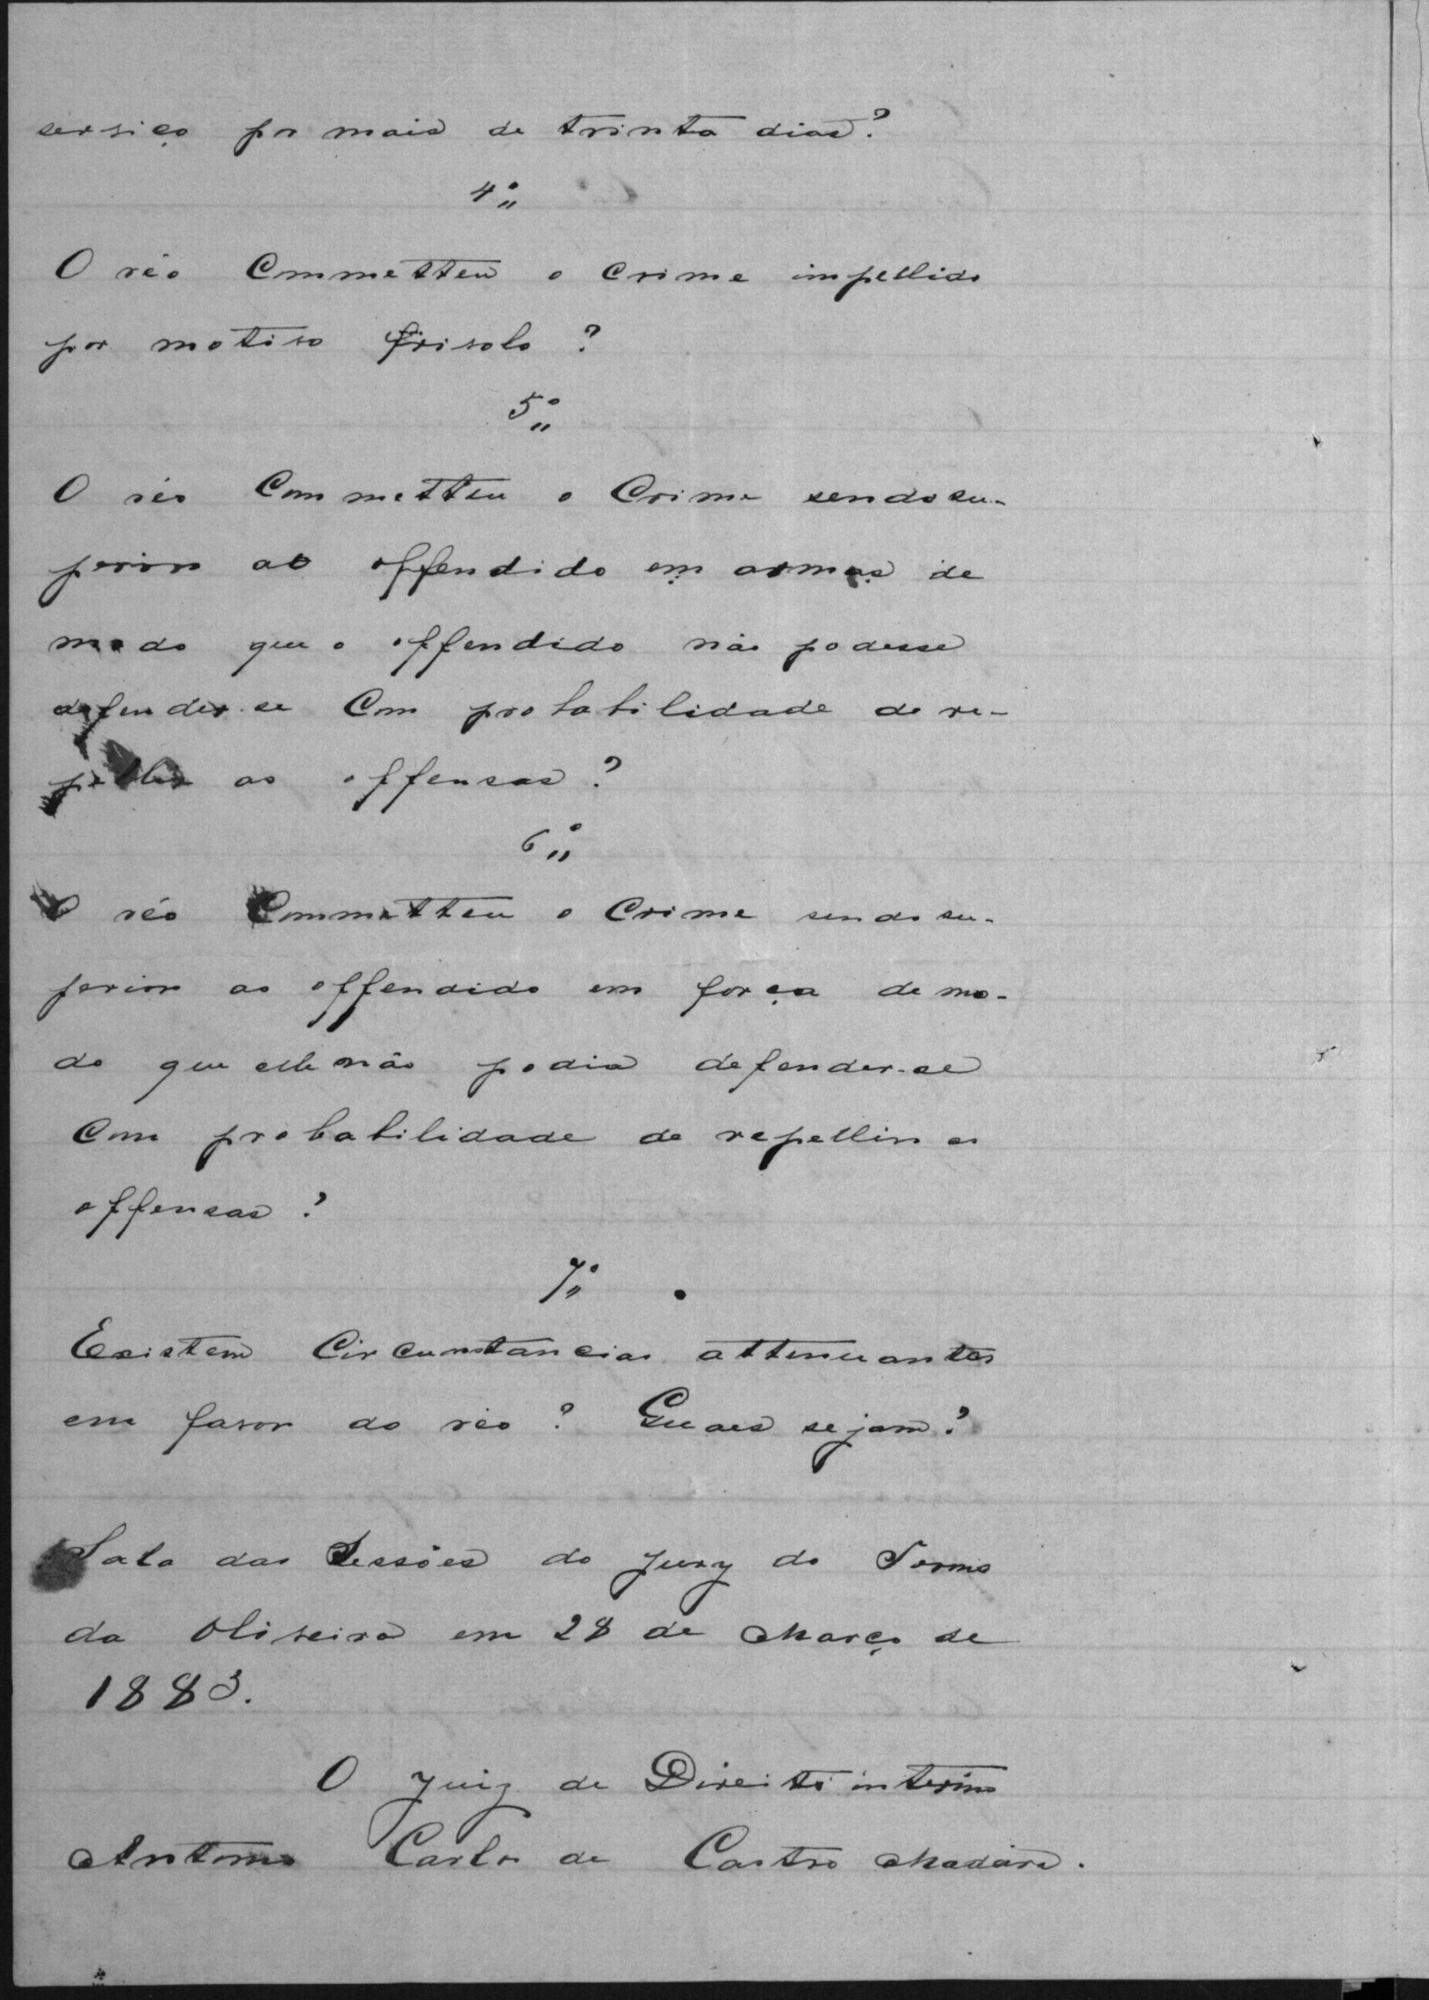 serviço por mais de trinta dias?
4º
O réo commetteu o crime impellido
por motivo frivolo?
5º
O réo commetteu o crime sendo su-
perior ao offendido em armas de
modo que o offendido não podesse
defender-se com probabilidade de re-
pellir as offensas?
6º
O réo commetteu o crime sendo su-
perior ao offendido em força de mo-
do que elle não podia defender-se
com probabilidade de repellir as
offensas?
7º
Existem circumstancias attenuantes
em favor do réo? Quaes sejam?
Sala das Sessões do Jury do Termo
da Oliveira em 28 de Março de
1883.
O Juiz de Direito interino
Antonio Carlos de Castro Madeira.